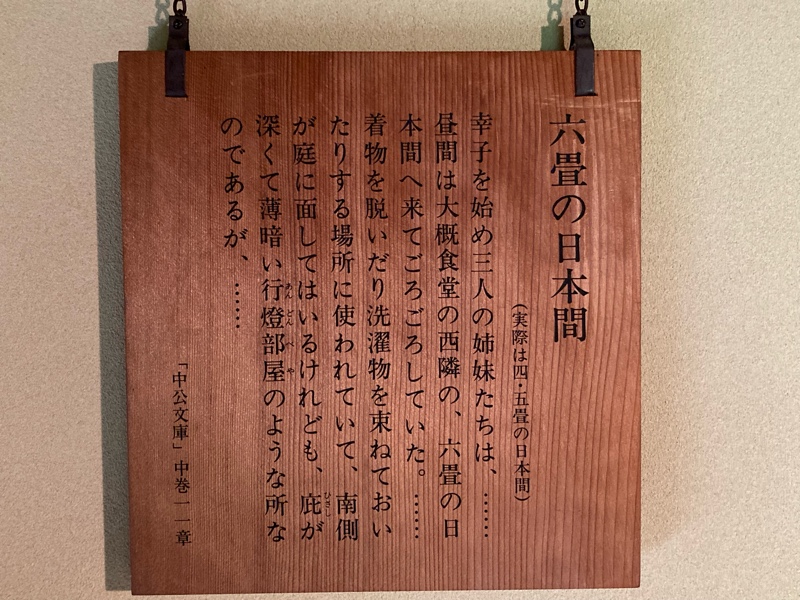 六畳の日本間
(実際は四・五畳の日本間)
幸子を始め三人の姉妹たちは、……
昼間は大概食堂の西隣の、六畳の日
本間へ来てごろごろしていた。……
着物を脱いだり洗濯物を束ねておい
たりする場所に使われていて、南側
が庭に面してはいるけれども、庇が
ひさし
深くて薄暗い行燈部屋のような所な
あんどんべや
のであるが、……
「中公文庫」中巻一一章